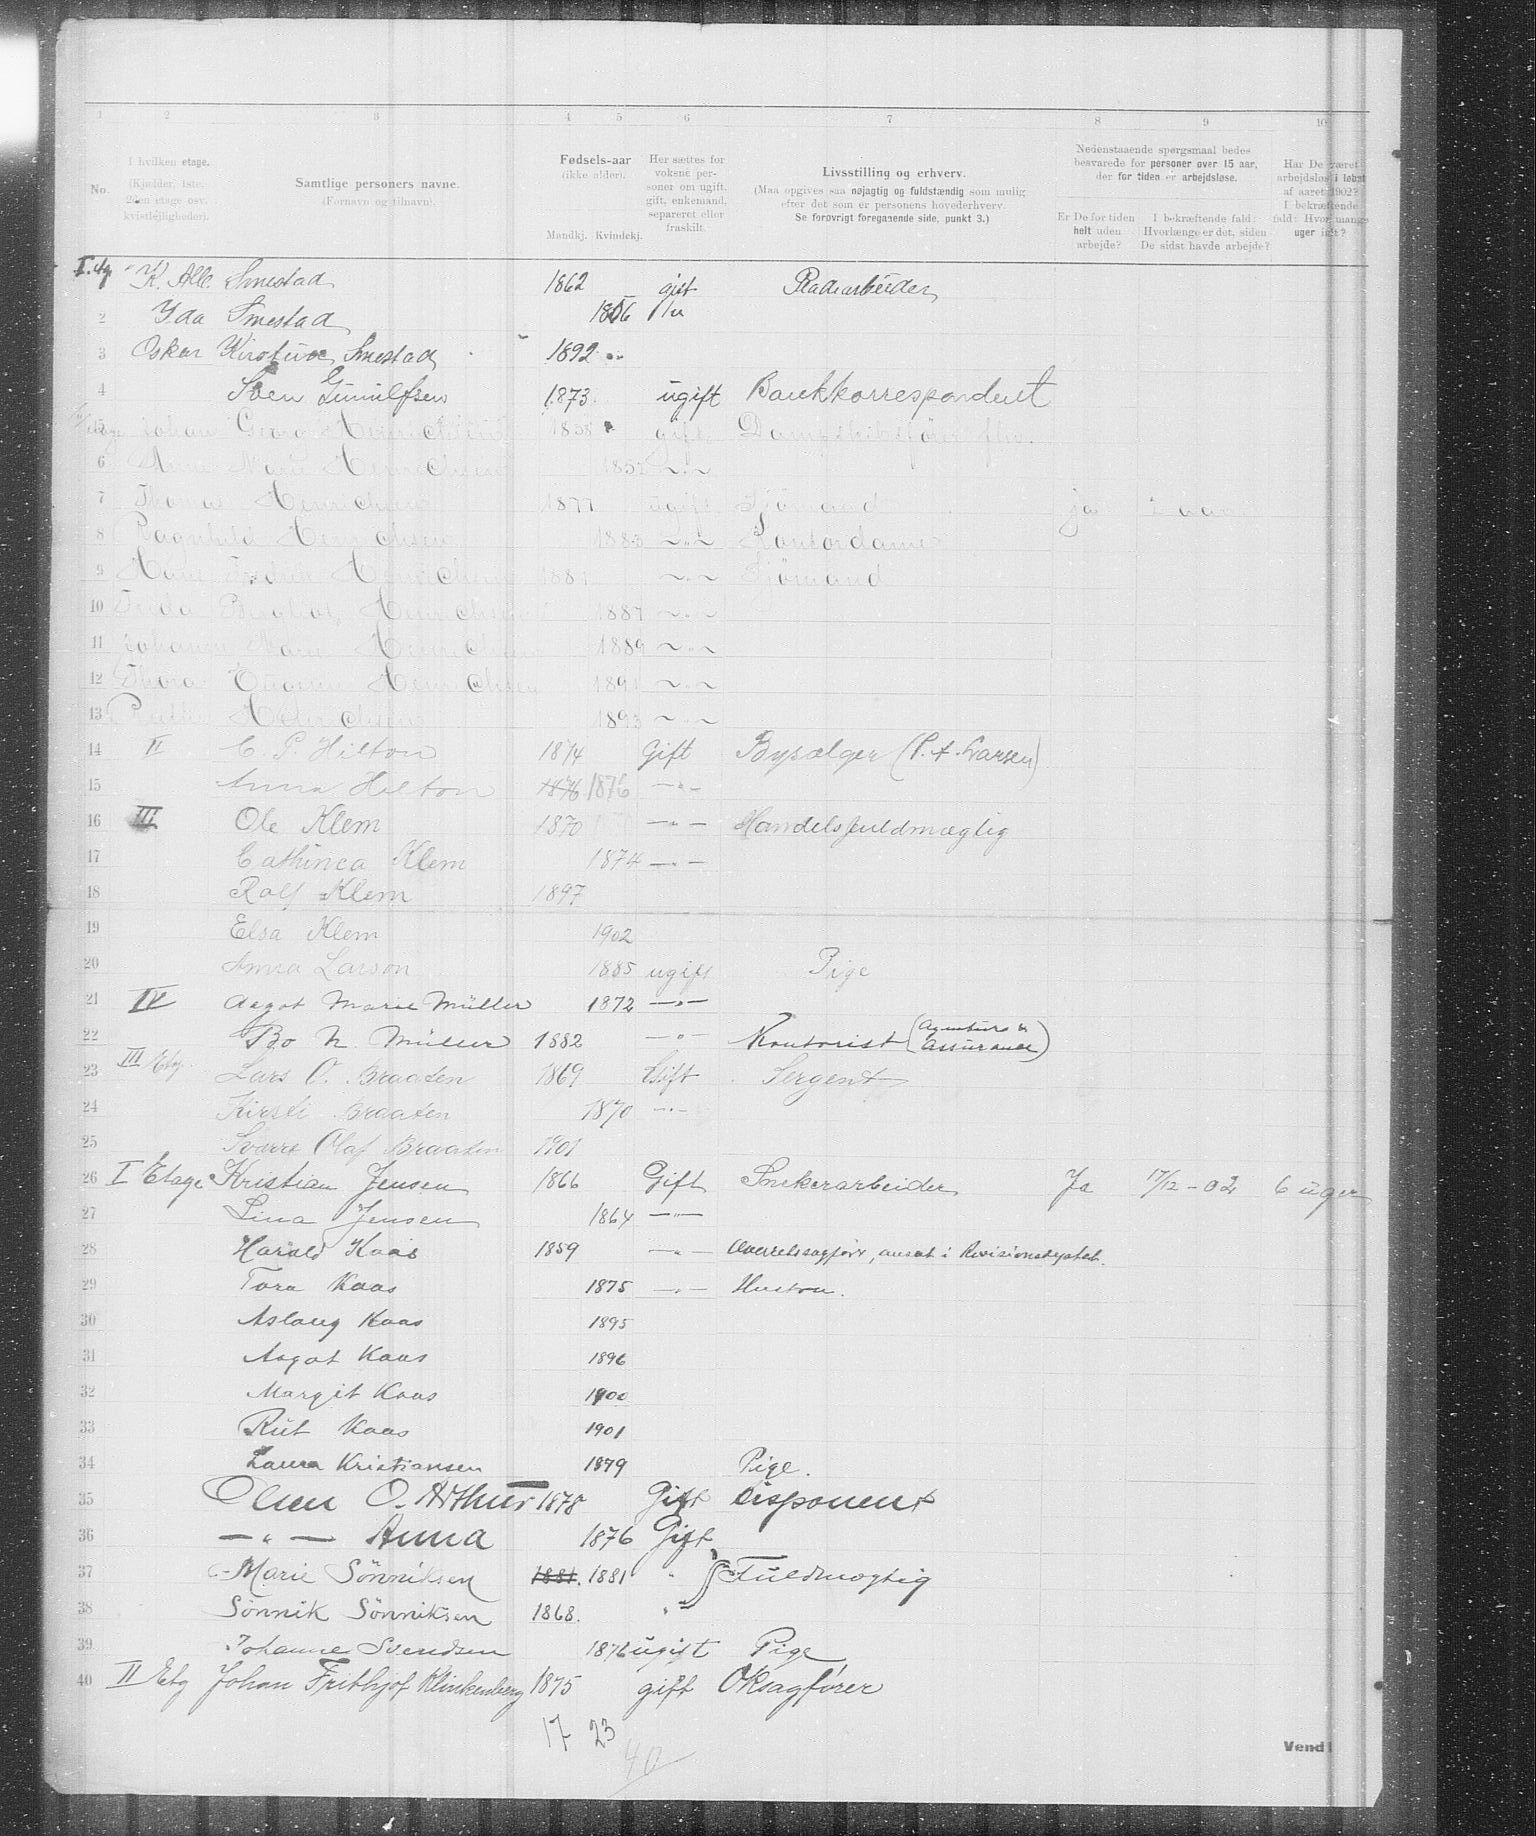 1 2 3 4 5 6 7 8 9 10
No.
I hvilken etage. (Kjælder, 1ste, 2den etage osv. kvistlejligheder).
Samtlige personers navne. (Fornavn og tilnavn).
Fødsels-aar (ikke alder). Mandkj. Kvindekj.
Her sættes for voksne personer om ugift, gift, enkemand, separeret eller fraskilt.
Livsstilling og erhverv. (Maa opgives saa nøjagtig og fuldstændig som mulig efter det som er personens hovederhverv. Se forøvrigt foregaaende side, punkt 3.)
Nedenstaaende spørgsmaal bedes besvarede for personer over 15 aar, der for tiden er arbejdsløse.
Er De for tiden helt uden arbejde?
I bekræftende fald: Hvorlænge er det, siden De sidst havde arbejde?
Har De været arbejdsløs i løbet af aaret 1902? I bekræftende fald: Hvor mange uger ialt?
I. etg K. Alb. Smestad 1862 gift
2 Yda Smestad
3 Oskar Smestad 1892
4 Sven 1873 ugift Bankkorrespondent
5 Johan Georg Henrichsen 1858 gift
6 Marie Henrichsen 1852 ~"~
7 Thomas Henrichsen 1877 ugift Sjømand ja
8 Ragnhild Henrichsen 1883 ~"~ Kontordame
9 Henrichsen ~"~ Sjømand
10 Henrichsen 1887 ~"~
11 Marie Henrichsen 1889 ~"~
12 Thora Henrichsen 1891 ~"~
13 Henrichsen 1893 ~"~
14 II C. P. Hilton 1874 Gift Bysælger (P. A. Larsen)
15 Anna Hilton 1876 1876 —"—
16 III Ole Klem 1870 —"— Handelsfuldmægtig
17 Cathinca Klem 1874 —"—
18 Rolf Klem 1897
19 Elsa Klem 1902
20 Anna Larson 1885 ugift Pige
21 IV Aagot Marie Müller 1872 —"—
22 Bo N. Müller 1882 —"— Kontorist (Agentur & Assurance)
23 III Etg. Lars O. Braaten 1869 Gift Sergent
24 Kirsti Braaten 1870 —"—
25 Sverre Olaf Braaten 1901
26 I Etage Kristian Jensen 1866 Gift Snekerarbeider Ja 17/12 - 02 6 uger
27 Lina Jensen 1864 —"—
28 Harald Kaas 1859 —"— Overretssagfører, ansat i Revisionsdeptet.
29 Tora Kaas 1875 —"— Hustru.
30 Aslaug Kaas 1895
31 Aagot Kaas 1896
32 Margit Kaas 1900
33 Rut Kaas 1901
34 Laura Kristiansen 1879 Pige.
35 Olsen O. Arthur 1878 Gift Disponent
36 —"— Anna 1876 Gift
37 Marie Sönniksen 1881. 1881 " Fuldmægtig
38 Sönnik Sönniksen 1868. "
39 Johanne Svendsen 1876 ugift Pige
40 II Etg Johan Frithjof Klinkenberg 1875 gift OKsagfører
17 23
40
Vend!